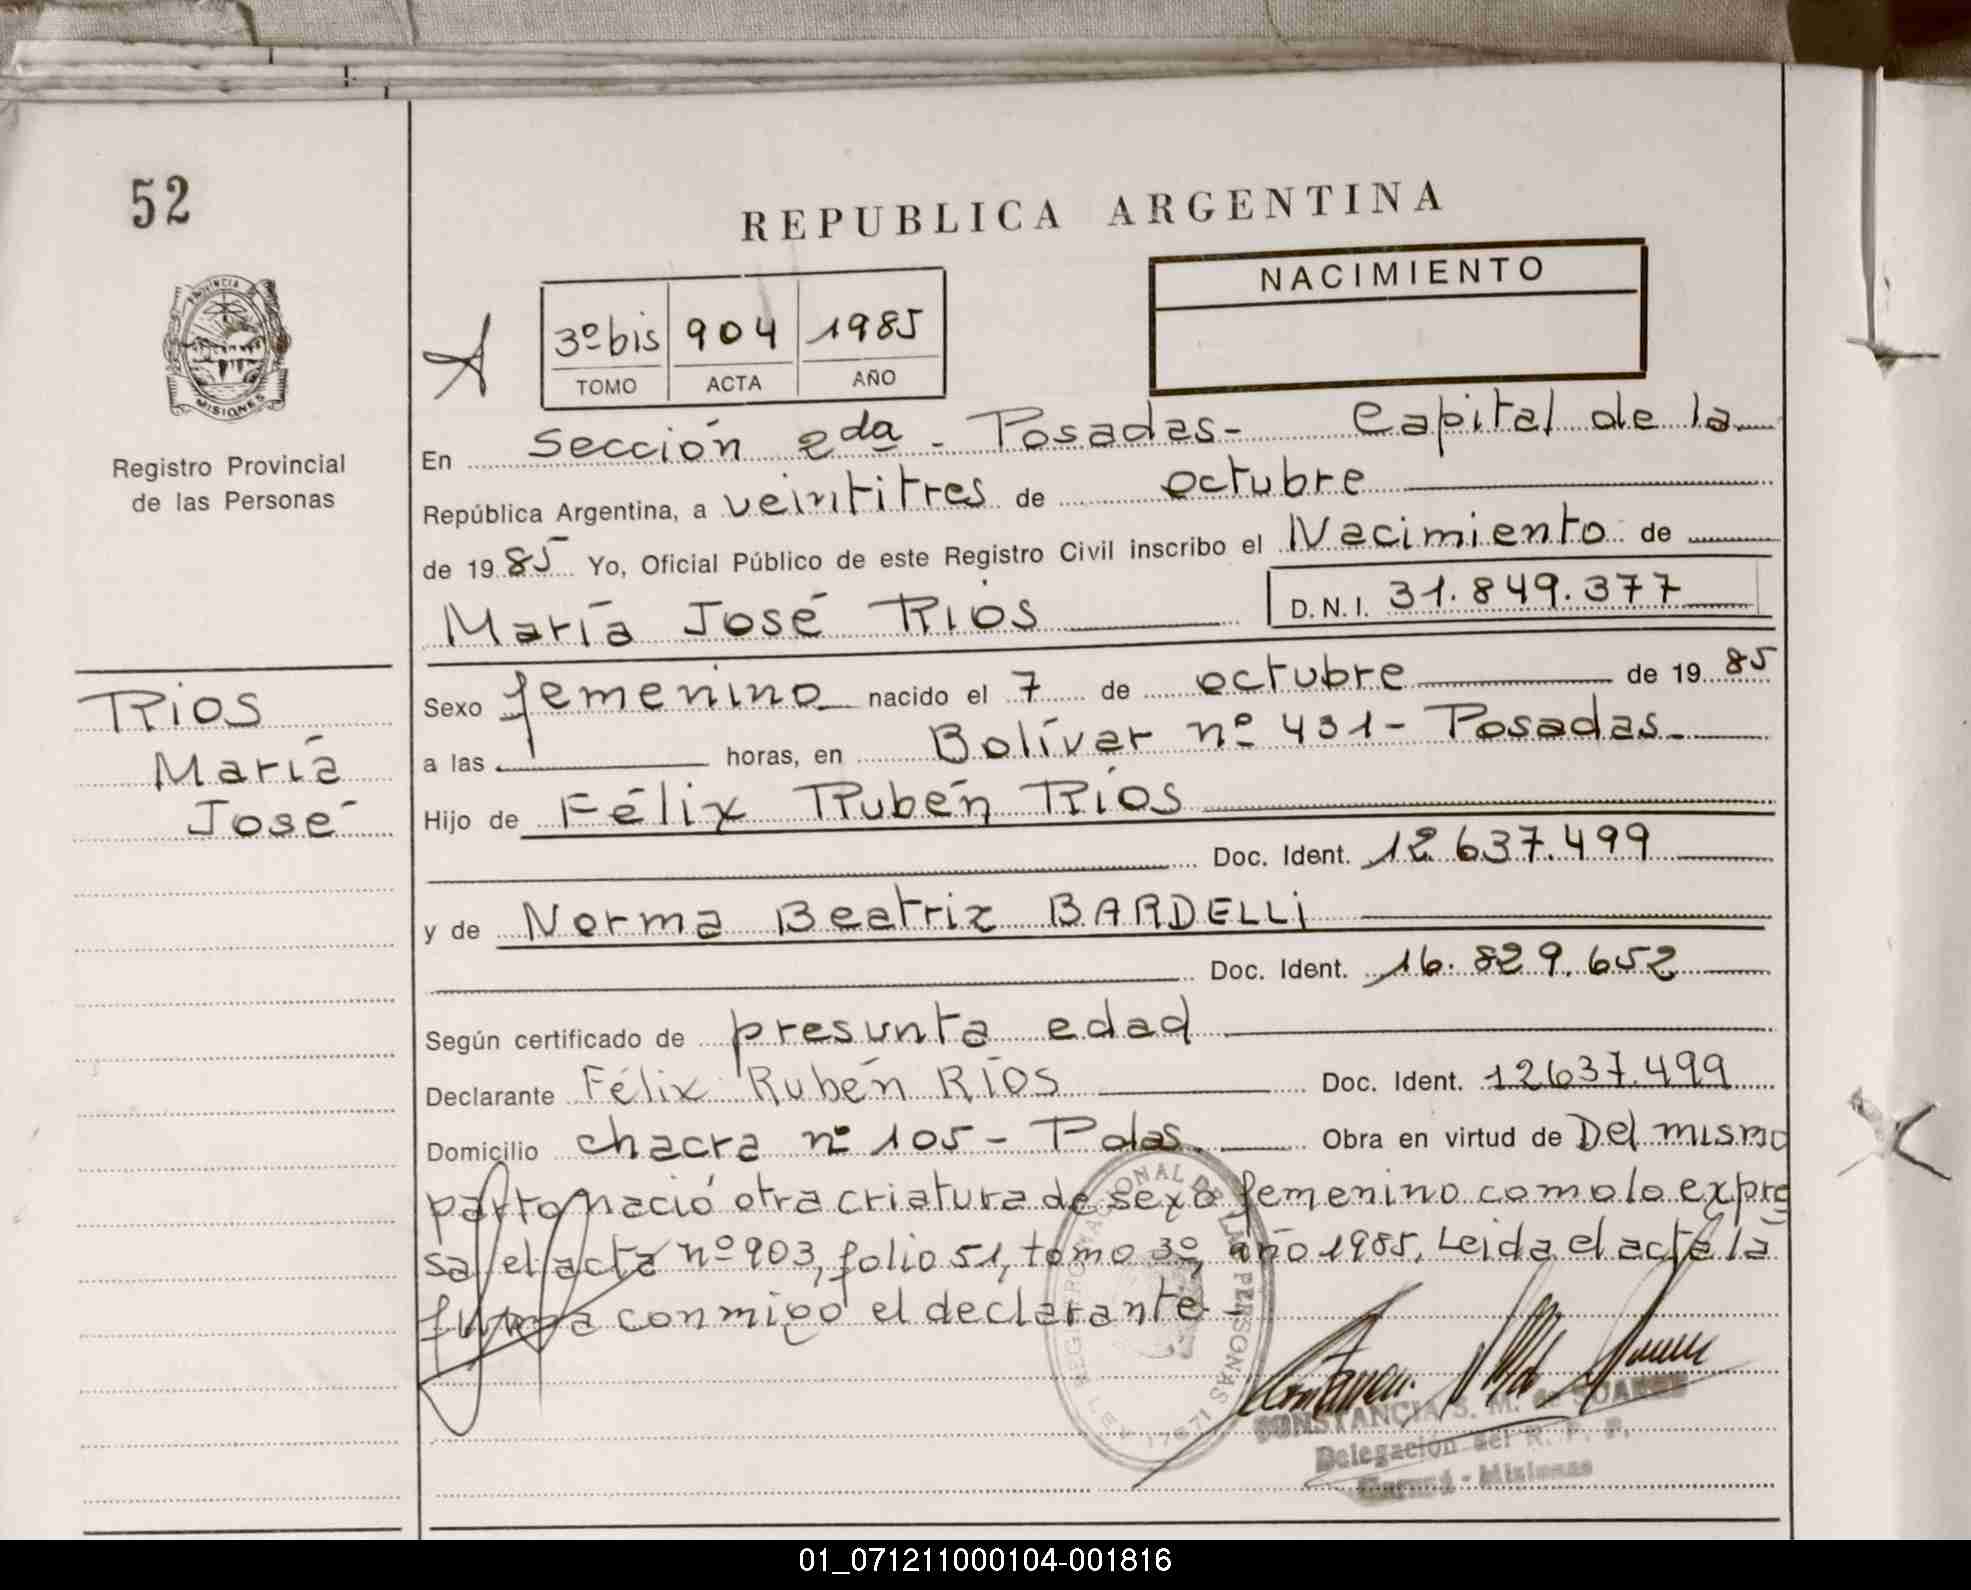 52
REPUBLICA ARGENTINA
PROVINCIA DE
MISIONES
Registro Provincial
de las Personas
NACIMIENTO
3º bis 904 1985
TOMO ACTA AÑO
En Sección 2da - Posadas - Capital de la
República Argentina, a veintitres de octubre
de 1985 Yo, Oficial Público de este Registro Civil inscribo el Nacimiento de
María José Ríos D.N.I. 31.849.377
Ríos
María
José
Sexo femenino nacido el 7 de octubre de 1985
a las horas, en Bolívar nº 431 - Posadas -
Hijo de Félix Rubén Ríos
Doc. Ident. 12.637.499
y de Norma Beatriz BARDELLi
Doc. Ident. 16.829.652
Según certificado de presunta edad
Declarante Félix Rubén Ríos Doc. Ident. 12637.499
Domicilio chacra nº 105 - Pdas. Obra en virtud de Del mismo
parto nació otra criatura de sexo femenino como lo expre
sa el acta nº 903, folio 51, tomo 3º, año 1985. Leida el acta la
firma conmigo el declarante -
REGISTRO NACIONAL DE LAS PERSONAS
LEY 17671
CONSTANCIA S. M. de SUAREZ
Delegación del R. P. P.
- Misiones
01_071211000104-001816